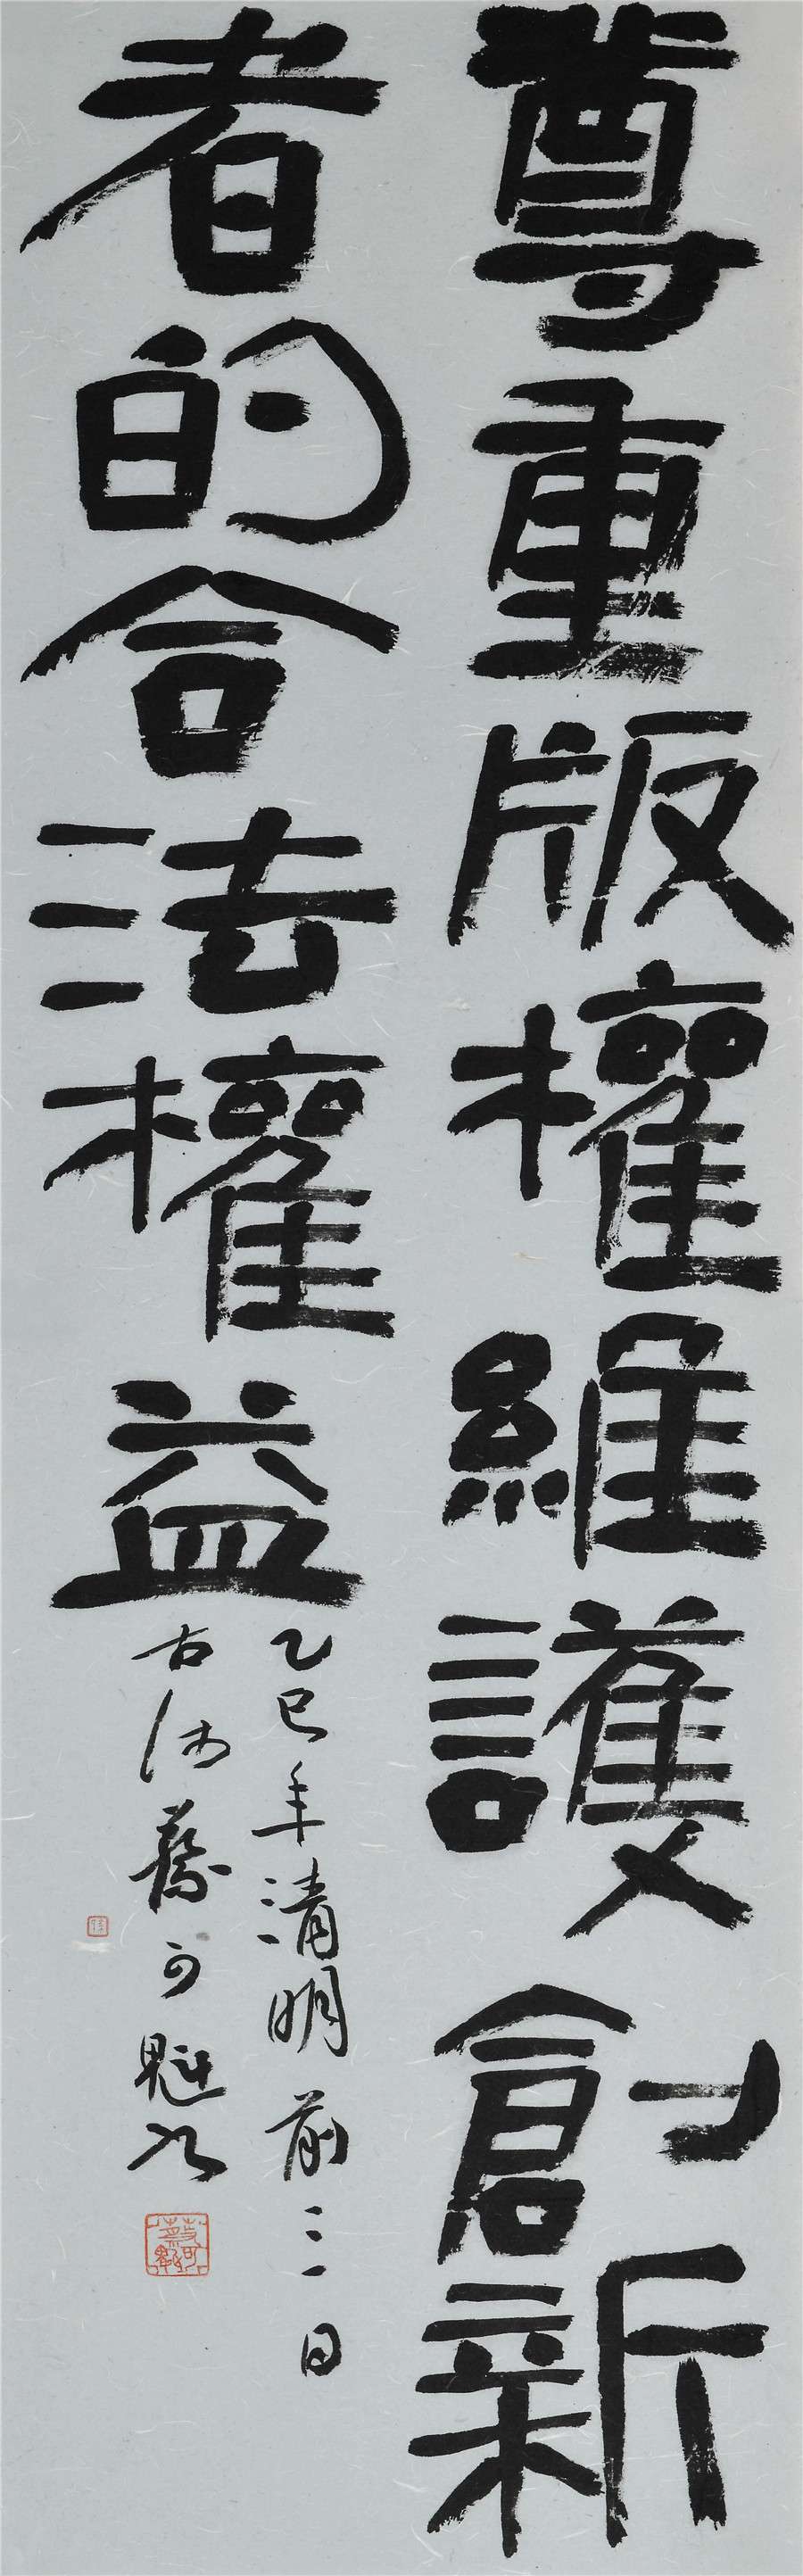 尊重版權維護創新
者的合法權益
乙巳年清明前三日
古沛蔡可魁